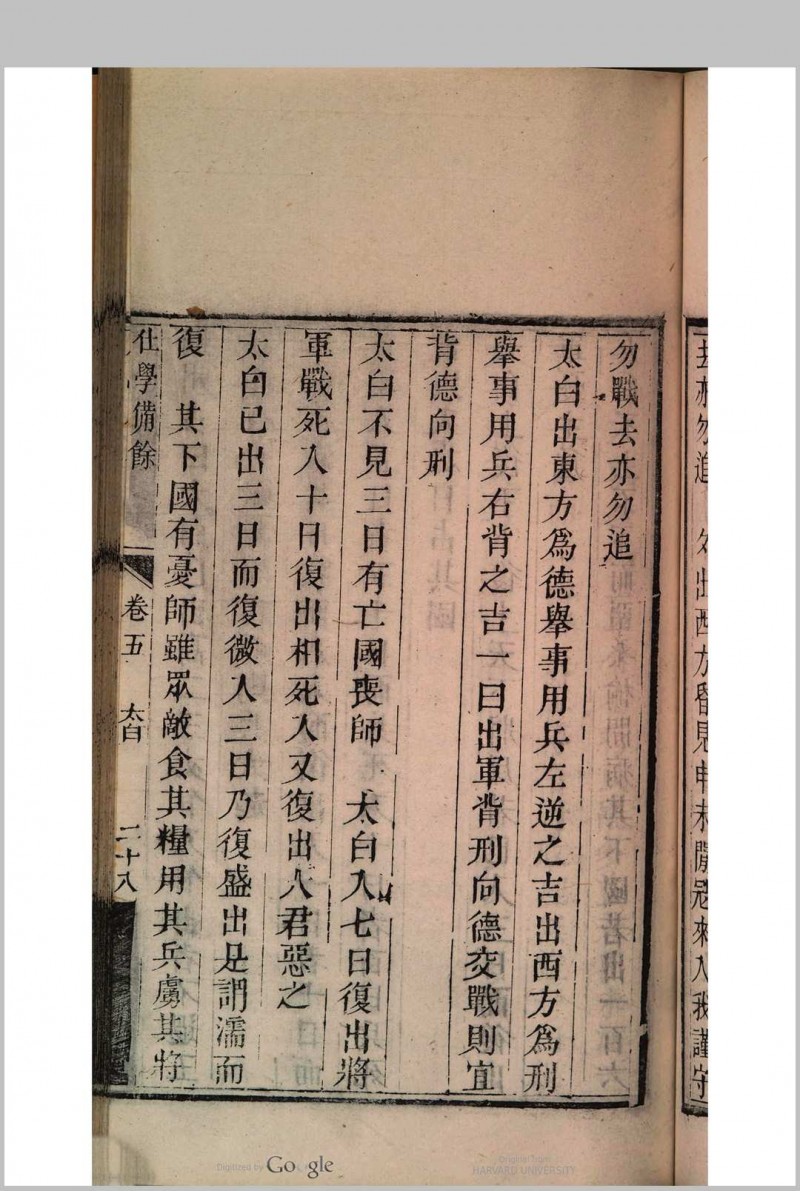 勿戰去亦勿追
太白出東方爲德舉事用兵左逆之吉出西方爲刑
舉事用兵右背之吉一曰出軍背刑向德交戰則宜
背德向刑
太白不見三日有亡國喪師　太白入七日復出將
軍戰死入十日復出相死入又復出人君惡之
太白已出三日而復微入三日乃復盛出是謂濡而
復　其下國有憂師雖眾敵食其糧用其兵虜其將
仕學備餘　卷五　太白　二十八
Digitized by Google
Original from
HARVARD UNIVERSITY